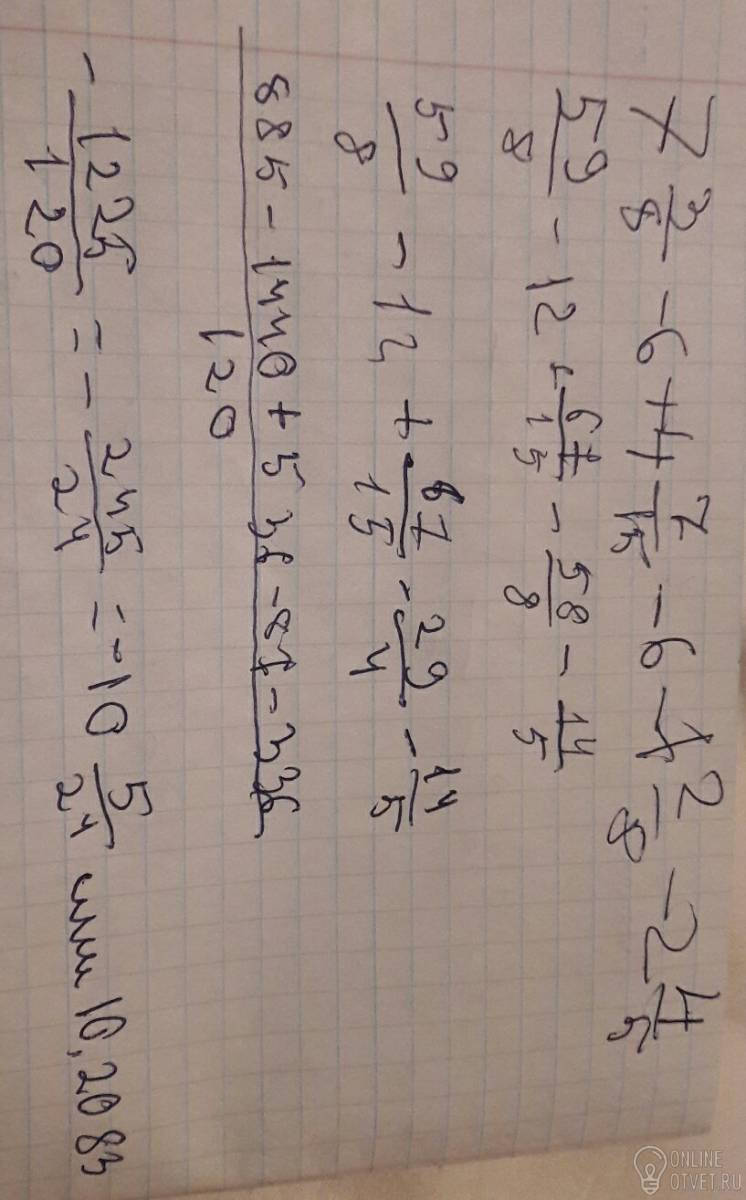 7 3/8 - 6 + 4 7/15 - 6 - 7 2/8 - 2 4/5
59/8 - 12 + 67/15 - 58/8 - 14/5
59/8 - 12 + 67/15 - 29/4 - 14/5
885 - 1440 + 536 - 87 - 336 / 120
- 1225/120 = - 245/24 = -10 5/24 или 10,2083
ONLINE
OTVET.RU